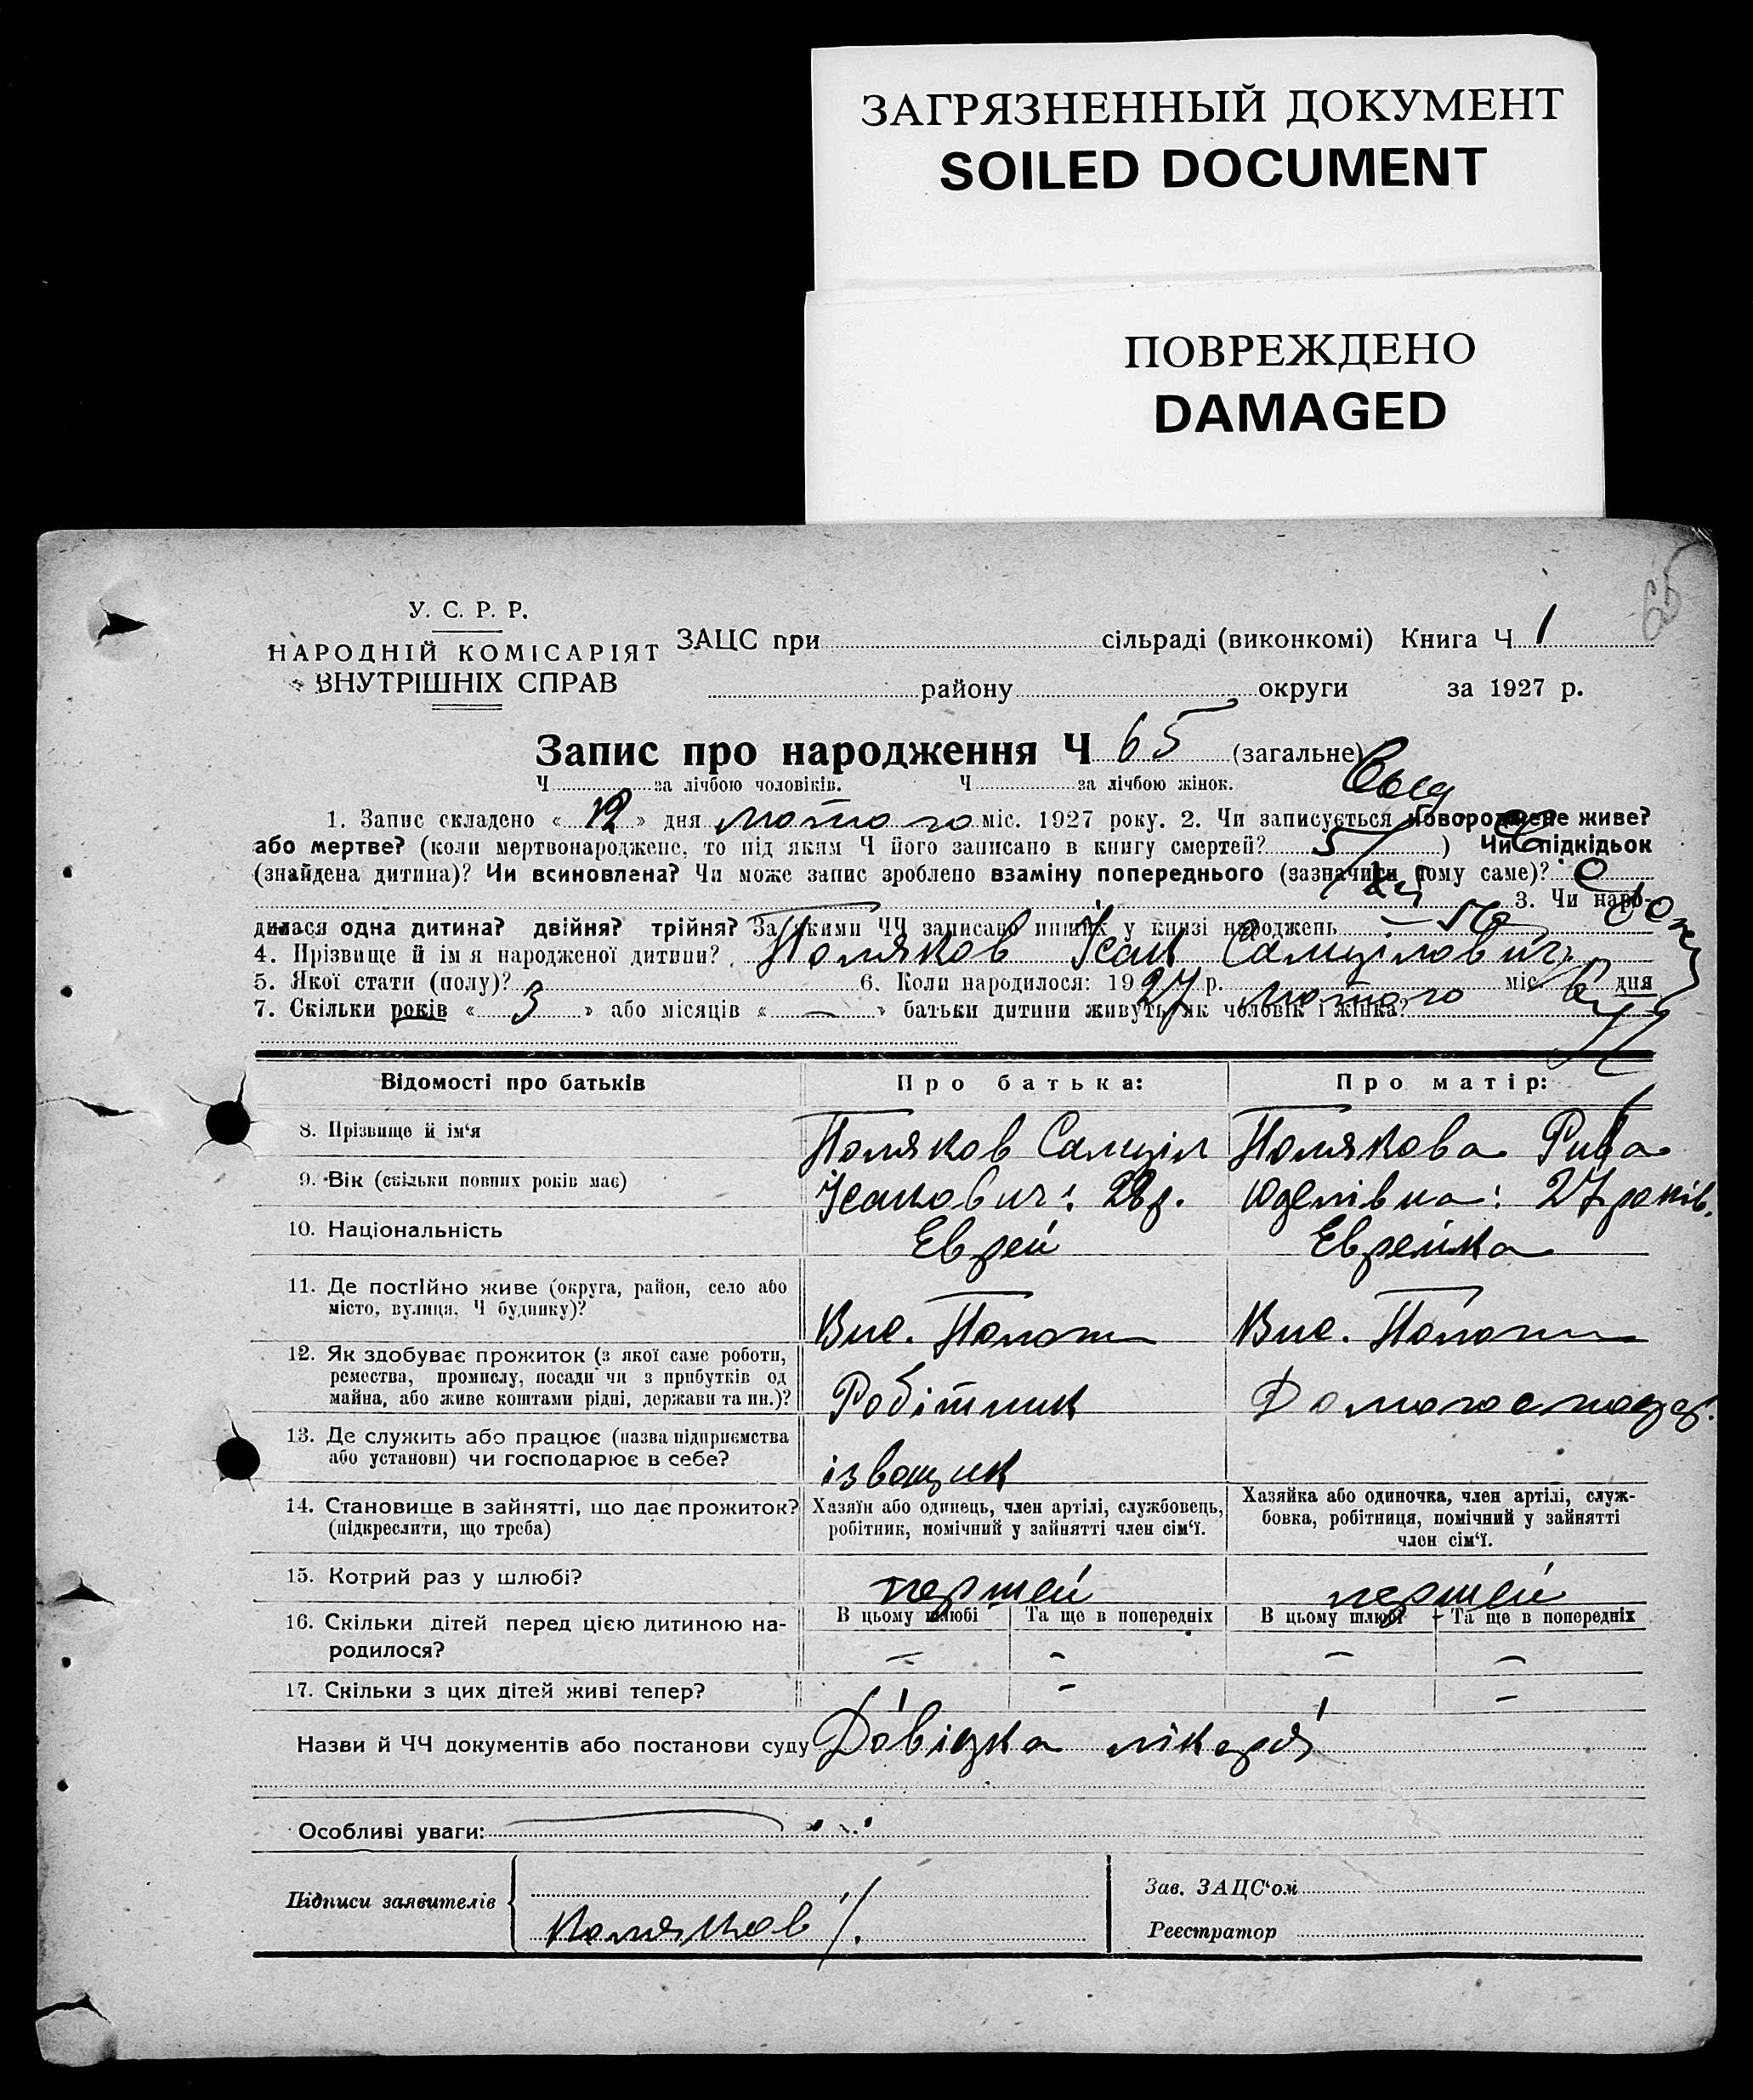 ЗАГРЯЗНЕННЫЙ ДОКУМЕНТ
SOILED DOCUMENT
ПОВРЕЖДЕНО
DAMAGED
65
У. С. Р. Р.
НАРОДНІЙ КОМІСАРІЯТ
ВНУТРІШНІХ СПРАВ
ЗАЦС при сільраді (виконкомі) Книга Ч 1
району округи за 1927 р.
Запис про народження Ч 65 (загальне)
Ч за лічбою чоловіків. Ч за лічбою жінок.
1. Запис складено « 12 » дня лютого міс. 1927 року. 2. Чи записується новороджене живе?
або мертве? (коли мертвонароджене, то під яким Ч його записано в книгу смертей? ) Чи підкідьок
(знайдена дитина)? Чи всиновлена? Чи може запис зроблено взаміну попереднього (зазначити чому саме)?
3. Чи наро-
дилася одна дитина? двійня? трійня? За якими ЧЧ записано инших у книзі народжень
4. Прізвище й ім'я народженої дитини? Поляков Ісак Самуілович
5. Якої стати (полу)? 6. Коли народилося: 1927 р. лютого міс. дня
7. Скільки років « 3 » або місяців « — » батьки дитини живуть як чоловік і жінка?
Відомості про батьків Про батька: Про матір:
8. Прізвище й ім'я Поляков Самуіл Полякова Рива
9. Вік (скільки повних років має) Ісакович: 28 р. Юделівна: 27 років.
10. Національність Еврей Еврейка
11. Де постійно живе (округа, район, село або
місто, вулиця, Ч будинку)? Вис. Пологи Вис. Пологи
12. Як здобуває прожиток (з якої саме роботи,
ремества, промислу, посади чи з прибутків од
майна, або живе коштами рідні, держави та ин.)? Робітник
13. Де служить або працює (назва підприємства
або установи) чи господарює в себе? ізвощик
14. Становище в зайнятті, що дає прожиток?
(підкреслити, що треба)
Хазяїн або одинець, член артілі, службовець,
робітник, помічний у зайнятті член сім'ї.
Хазяйка або одиночка, член артілі, служ-
бовка, робітниця, помічний у зайнятті
член сім'ї.
15. Котрий раз у шлюбі? першей першей
16. Скільки дітей перед цією дитиною на-
родилося?
В цьому шлюбі Та ще в попередніх В цьому шлюбі Та ще в попередніх
– – – –
17. Скільки з цих дітей живі тепер? 1 – 1 –
Назви й ЧЧ документів або постанови суду Довідка лікаря
Особливі уваги:
Підписи заявителів Поляков
Зав. ЗАЦС'ом
Реєстратор